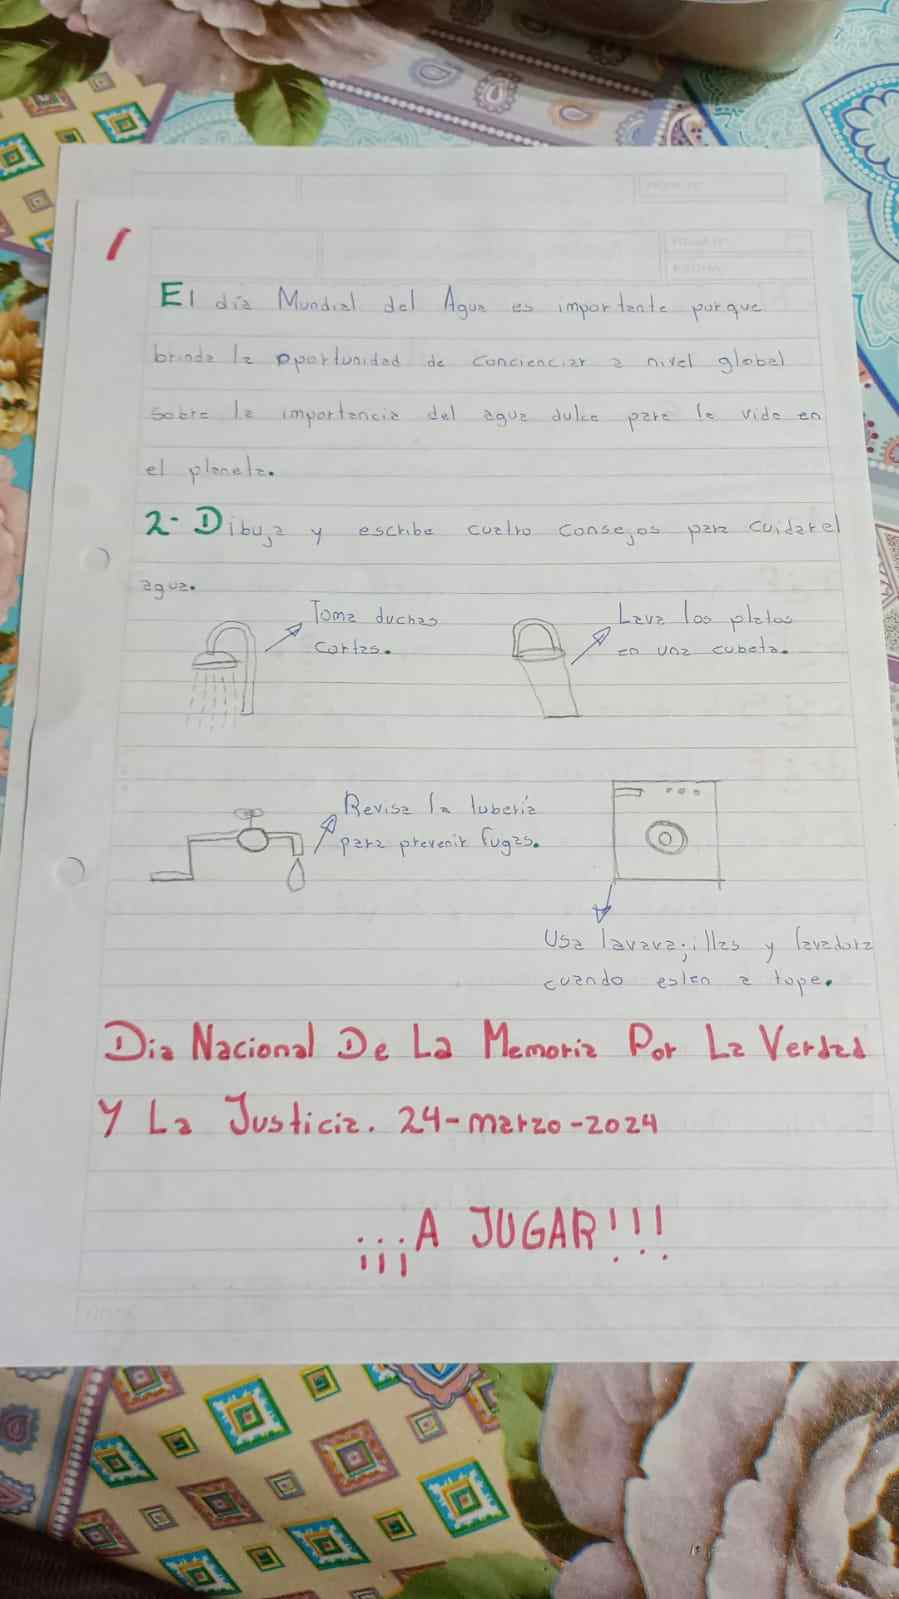 1
El día Mundial del Agua es importante porque
brinda la oportunidad de concienciar a nivel global
sobre la importancia del agua dulce para la vida en
el planeta.
2- Dibuja y escribe cuatro consejos para cuidar el
agua.
Toma duchas
cortas.
Lava los platos
en una cubeta.
Revisa la tubería
para prevenir fugas.
Usa lavavajillas y lavadora
cuando esten a tope.
Dia Nacional De La Memoria Por La Verdad
Y La Justicia. 24-marzo-2024
¡¡¡A JUGAR!!!